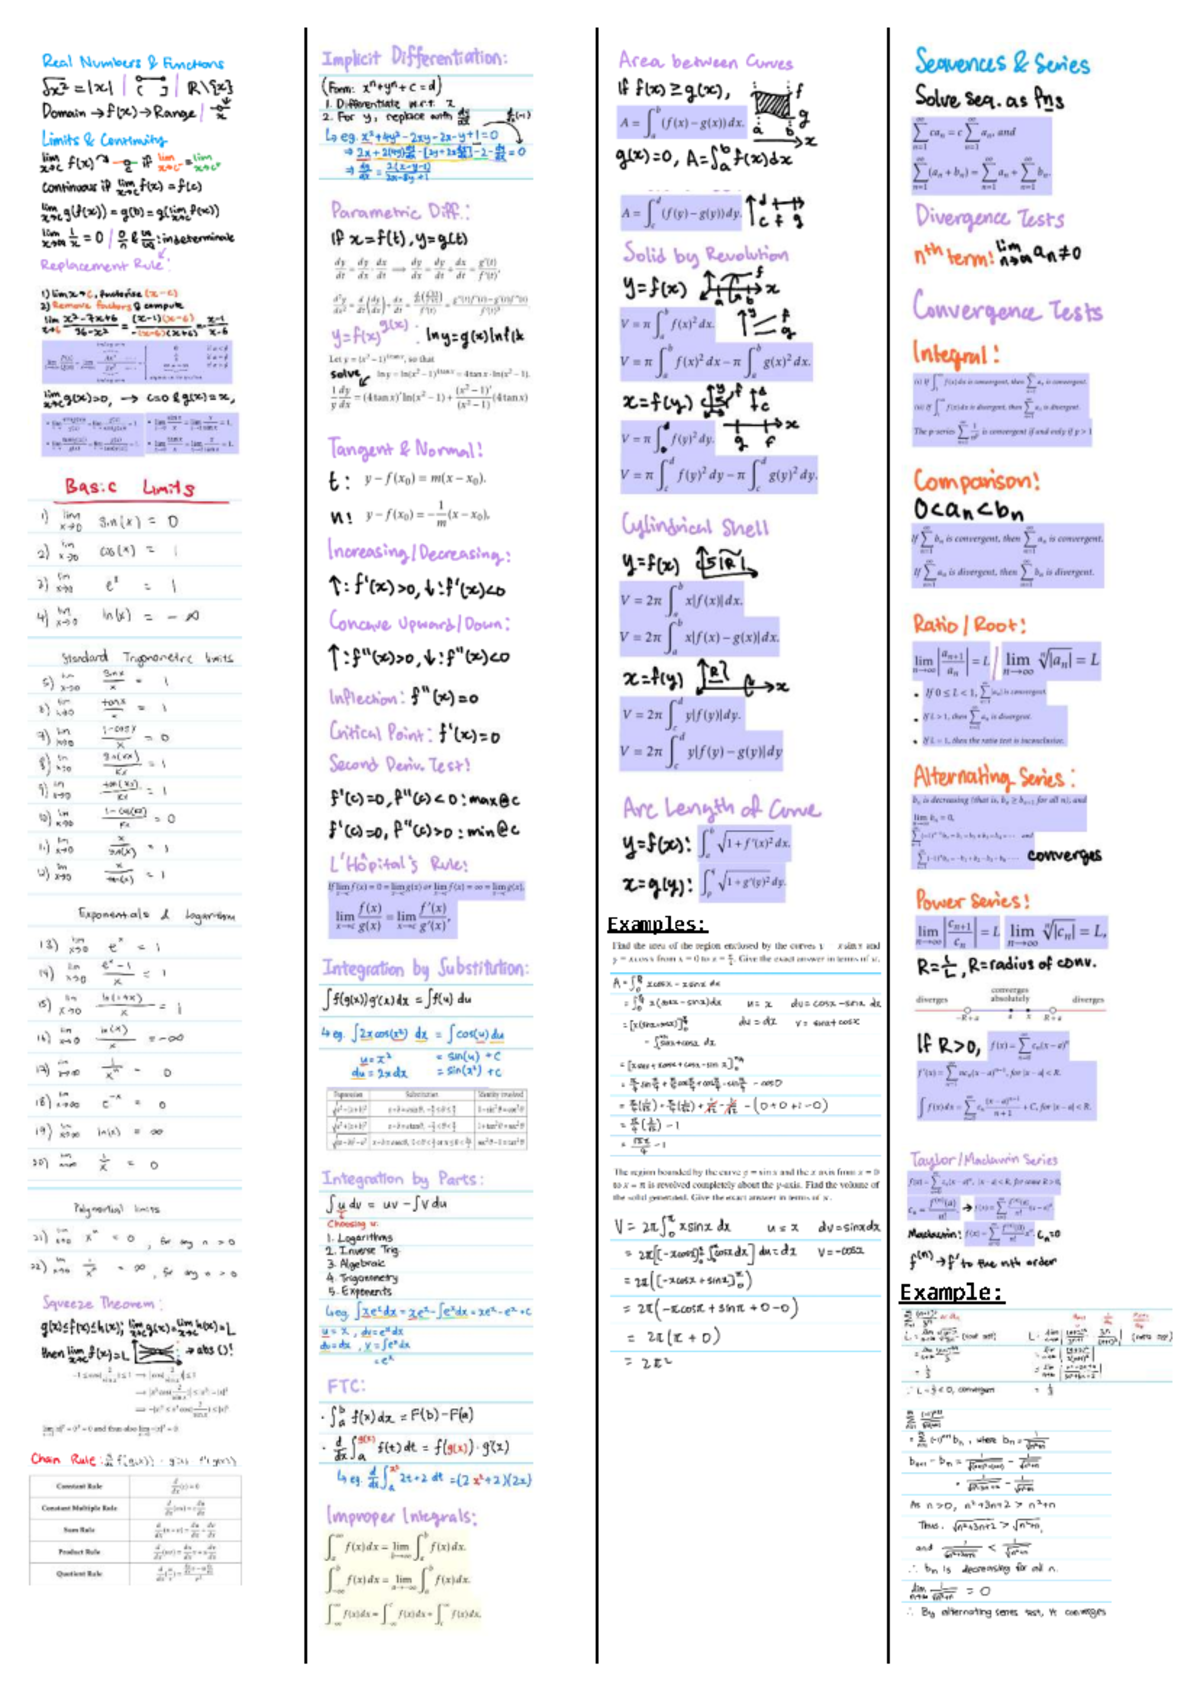 Real Numbers & Functions
√x² = |x| | [ ] ( ) | R\{x}
Domain → f(x) → Range
Limits & Continuity
lim x→c f(x) → if lim x→c⁻ = lim x→c⁺
Continuous if lim x→c f(x) = f(c)
lim x→c g(f(x)) = g(b) = g(lim x→c f(x))
lim x→∞ 1/x = 0 | 0/0 & ∞/∞ : indeterminate
Replacement Rule:
1) lim x→c, factorise (x-c)
2) Remove factors & compute
lim x→6 x²-7x+6 / 36-x² = (x-1)(x-6) / -(x-6)(x+6) = - x-1 / x-6
lim x→c g(x)=0, → c=0 & g(x)=x,
Basic Limits
1) lim x→0 sin(x) = 0
2) lim x→0 cos(x) = 1
3) lim x→0 eˣ = 1
4) lim x→0 ln(x) = -∞
Standard Trigonometric limits
5) lim x→0 sinx/x = 1
6) lim x→0 tanx/x = 1
7) lim x→0 1-cosx/x = 0
8) lim x→0 sin(kx)/kx = 1
9) lim x→0 tan(kx)/kx = 1
10) lim x→0 1-cos(kx)/kx = 0
11) lim x→0 x/sin(x) = 1
12) lim x→0 x/tan(x) = 1
Exponentials & Logarithm
13) lim x→0 eˣ = 1
14) lim x→0 eˣ-1/x = 1
15) lim x→0 ln(1+x)/x = 1
16) lim x→0 ln(x) = -∞
17) lim x→∞ 1/xⁿ = 0
18) lim x→∞ e⁻ˣ = 0
19) lim x→∞ ln(x) = ∞
20) lim x→∞ 1/x = 0
Polynomial limits
21) lim x→0 xⁿ = 0, for any n > 0
22) lim x→0 1/xⁿ = ∞, for any n > 0
Squeeze Theorem:
g(x)≤f(x)≤h(x); lim x→c g(x) = lim x→c h(x) = L
then lim x→c f(x) = L : → abs()!
Chain Rule:
Constant Rule
Constant Multiple Rule
Sum Rule
Product Rule
Quotient Rule
Implicit Differentiation:
(Form: xⁿ+yⁿ+c=d)
1. Differentiate w.r.t. x
2. For y, replace with dy/dx
↳ eg. x²+4y²-2xy-2x-y+1=0
⇒ 2x+2(4y)dy/dx-[2y+2x dy/dx]-2-dy/dx=0
⇒ dy/dx = 2(x-y-1) / 2x-8y+1
Parametric Diff.:
If x=f(t), y=g(t)
dy/dt = dy/dx · dx/dt ⟹ dy/dx = dy/dt ÷ dx/dt = g'(t)/f'(t),
y=f(x)^g(x) : lny=g(x)lnf(x)
Let y = (x² − 1)^4tanx, so that
solve ln y = ln(x² − 1)^4tanx = 4 tan x · ln(x² − 1).
1/y dy/dx = (4 tan x)' ln(x² − 1) + (x² − 1)'/(x² − 1) (4 tan x)
Tangent & Normal!
t: y − f(x₀) = m(x − x₀).
n! y − f(x₀) = −1/m (x − x₀).
Increasing/Decreasing:
↑: f'(x)>0, ↓: f'(x)<0
Concave Upward/Down:
↑: f"(x)>0, ↓: f"(x)<0
Inflection: f"(x)=0
Critical Point: f'(x)=0
Second Deriv. Test!
f'(c)=0, f"(c)<0: max@c
f'(c)=0, f"(c)>0: min@c
L'Hôpital's Rule!
If lim f(x) = 0 = lim g(x) or lim f(x) = ∞ = lim g(x),
lim x→c f(x)/g(x) = lim x→c f'(x)/g'(x),
Integration by Substitution:
∫f(g(x))g'(x)dx = ∫f(u) du
↳ eg. ∫2xcos(x²) dx = ∫cos(u) du
u=x² = sin(u) + C
du=2xdx = sin(x²)+C
Expression Substitution Identity involved
Integration by Parts:
∫u dv = uv − ∫v du
Choosing u:
1. Logarithms
2. Inverse Trig.
3. Algebraic
4. Trigonometry
5. Exponents
↳ eg. ∫xeˣdx = xeˣ-∫eˣdx = xeˣ-eˣ+C
u=x, dv=eˣdx
du=dx, v=∫eˣdx
=eˣ
FTC:
· ∫ₐᵇ f(x)dx = F(b)-F(a)
· d/dx ∫ₐ^g(x) f(t)dt = f(g(x))·g'(x)
↳ eg. d/dx ∫ₐ^x² 2t+2 dt = (2x²+2)(2x)
Improper Integrals:
∫ₐ^∞ f(x) dx = lim b→∞ ∫ₐᵇ f(x) dx.
∫₋∞ᵇ f(x) dx = lim a→−∞ ∫ₐᵇ f(x) dx.
∫₋∞^∞ f(x) dx = ∫₋∞ᶜ f(x) dx + ∫c^∞ f(x) dx.
Area between Curves
If f(x)≥g(x),
A = ∫ₐᵇ (f(x) − g(x)) dx.
g(x)=0, A=∫ₐᵇ f(x)dx
A = ∫cᵈ (f(y) − g(y)) dy.
Solid by Revolution
y=f(x)
V = π ∫ₐᵇ f(x)² dx.
V = π ∫ₐᵇ f(x)² dx − π ∫ₐᵇ g(x)² dx.
x=f(y)
V = π ∫cᵈ f(y)² dy.
V = π ∫cᵈ f(y)² dy − π ∫cᵈ g(y)² dy.
Cylindrical Shell
y=f(x)
V = 2π ∫ₐᵇ x|f(x)| dx.
V = 2π ∫ₐᵇ x|f(x) − g(x)| dx.
x=f(y)
V = 2π ∫cᵈ y|f(y)| dy.
V = 2π ∫cᵈ y|f(y) − g(y)| dy
Arc Length of Curve
y=f(x): ∫ₐᵇ √1 + f'(x)² dx.
x=g(y): √1 + g'(y)² dy.
Examples:
Find the area of the region enclosed by the curves y = x sin x and
y = x cos x from x = 0 to x = π/4. Give the exact answer in terms of π.
A = ∫ xcosx - xsinx dx
= ∫ x(cosx-sinx)dx u=x dv=cosx-sinx dx
du=dx v=sinx+cosx
- ∫sinx+cosx dx
The region bounded by the curve y = sin x and the x axis from x = 0
to x = π is revolved completely about the y-axis. Find the volume of
the solid generated. Give the exact answer in terms of π.
V = 2π∫₀^π xsinx dx u=x dv=sinxdx
= 2π[[-xcosx]∫cosxdx] du=dx v=-cosx
= 2π([-xcosx+sinx]₀^π)
= 2π(-πcosπ+sinπ+0-0)
= 2π(π+0)
= 2π²
Sequences & Series
Solve seq. as fns
∑ caₙ = c ∑ aₙ, and
∑ (aₙ + bₙ) = ∑ aₙ + ∑ bₙ.
Divergence Tests
nᵗʰ term! lim n→∞ aₙ≠0
Convergence Tests
Integral!
(i) If ∫ f(x) dx is convergent, then ∑ aₙ is convergent.
(ii) If ∫ f(x) dx is divergent, then ∑ aₙ is divergent.
The p series ∑ 1/nᵖ is convergent if and only if p > 1
Comparison!
0<aₙ<bₙ
If ∑ bₙ is convergent, then ∑ aₙ is convergent.
If ∑ aₙ is divergent, then ∑ bₙ is divergent.
Ratio/Root!
lim n→∞ |aₙ₊₁/aₙ| = L / lim n→∞ ⁿ√|aₙ| = L
• If 0 ≤ L < 1, ∑ |aₙ| is convergent.
• If L > 1, then ∑ aₙ is divergent.
• If L = 1, then the ratio test is inconclusive.
Alternating Series:
bₙ is decreasing (that is, bₙ ≥ bₙ₊₁ for all n), and
lim bₙ = 0,
converges
Power Series!
lim n→∞ |cₙ₊₁/cₙ| = L lim n→∞ ⁿ√|cₙ| = L,
R=1/L, R=radius of conv.
converges
diverges absolutely diverges
−R+a a x R+a
If R>0, f(x) = ∑ cₙ(x − a)ⁿ
f'(x) = ∑ ncₙ(x − a)ⁿ⁻¹, for |x − a| < R.
∫ f(x) dx = ∑ cₙ (x − a)ⁿ⁺¹/n + 1 + C, for |x − a| < R.
Taylor/Maclaurin Series
Maclaurin:
f⁽ⁿ⁾ → f' to the nth order
Example:
∴ L=1/3 <0, convergent
= ∑ (-1)ⁿ⁺¹ bₙ, where bₙ = 1/√n²+n
As n>0, n²+3n+2 > n²+n
Thus. √n²+3n+2 > √n²+n,
and 1/√n²+3n+2 < 1/√n²+n
∴ bₙ is decreasing for all n.
lim n→∞ 1/√n²+n = 0
∴ By alternating series test, it converges